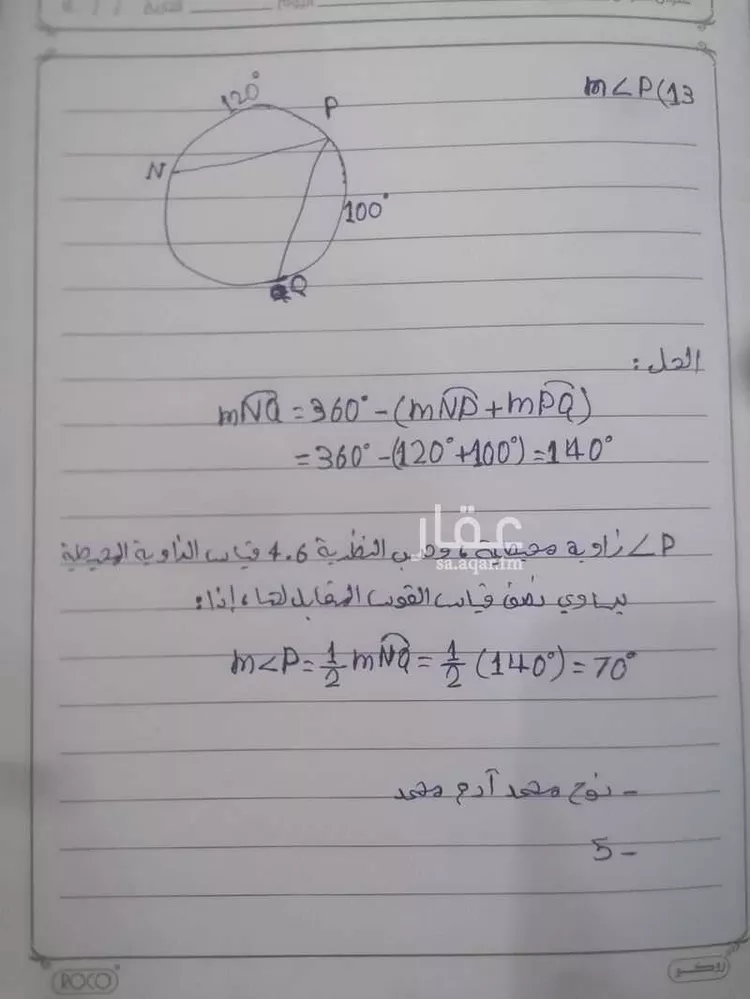 m<P(13
120°
P
N
100°
Q
الحل:
mNQ = 360° - (mNP + mPQ)
= 360° - (120° + 100°) = 140°
P> زاوية محيطية، وحسب النظرية 4.6 قياس الزاوية المحيطية
يساوي نصف قياس القوس المقابل لها، إذا:
m<P = 1/2 mNQ = 1/2 (140°) = 70°
- نوح محمد آدم محمد
5 -
عقار
sa.aqar.fm
ROCO
روكو